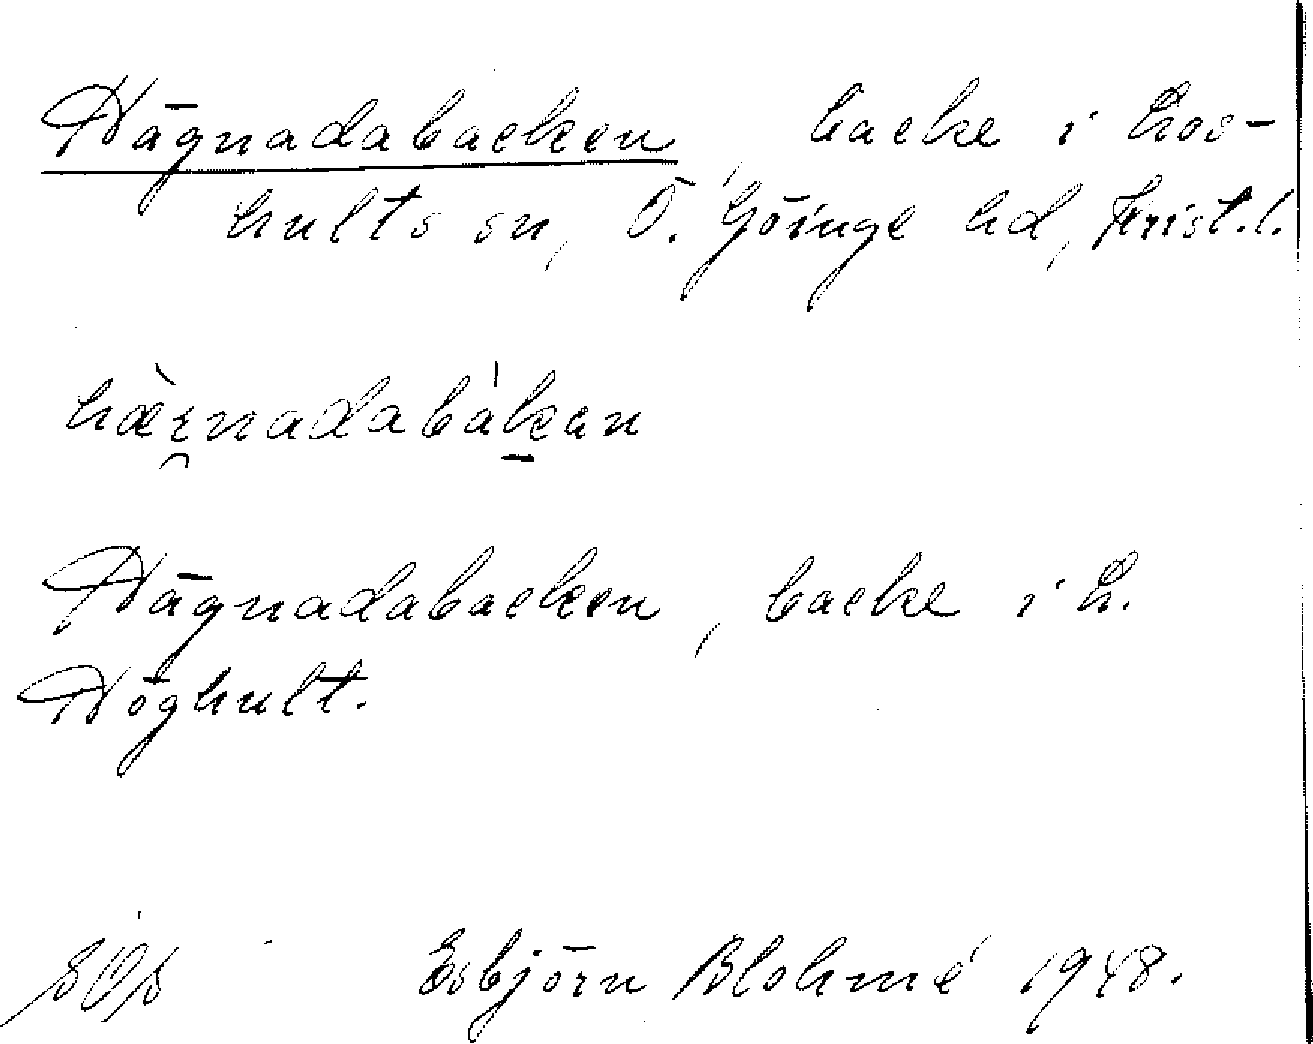 Hägnadabacken, backe i Los-
hults sn, Ö. Göinge hd, Krist.l.
hæ̀ɪ̯nadabàkan
Hägnadabacken, backe i L.
Höghult.
Esbjörn Blohmé 1948.